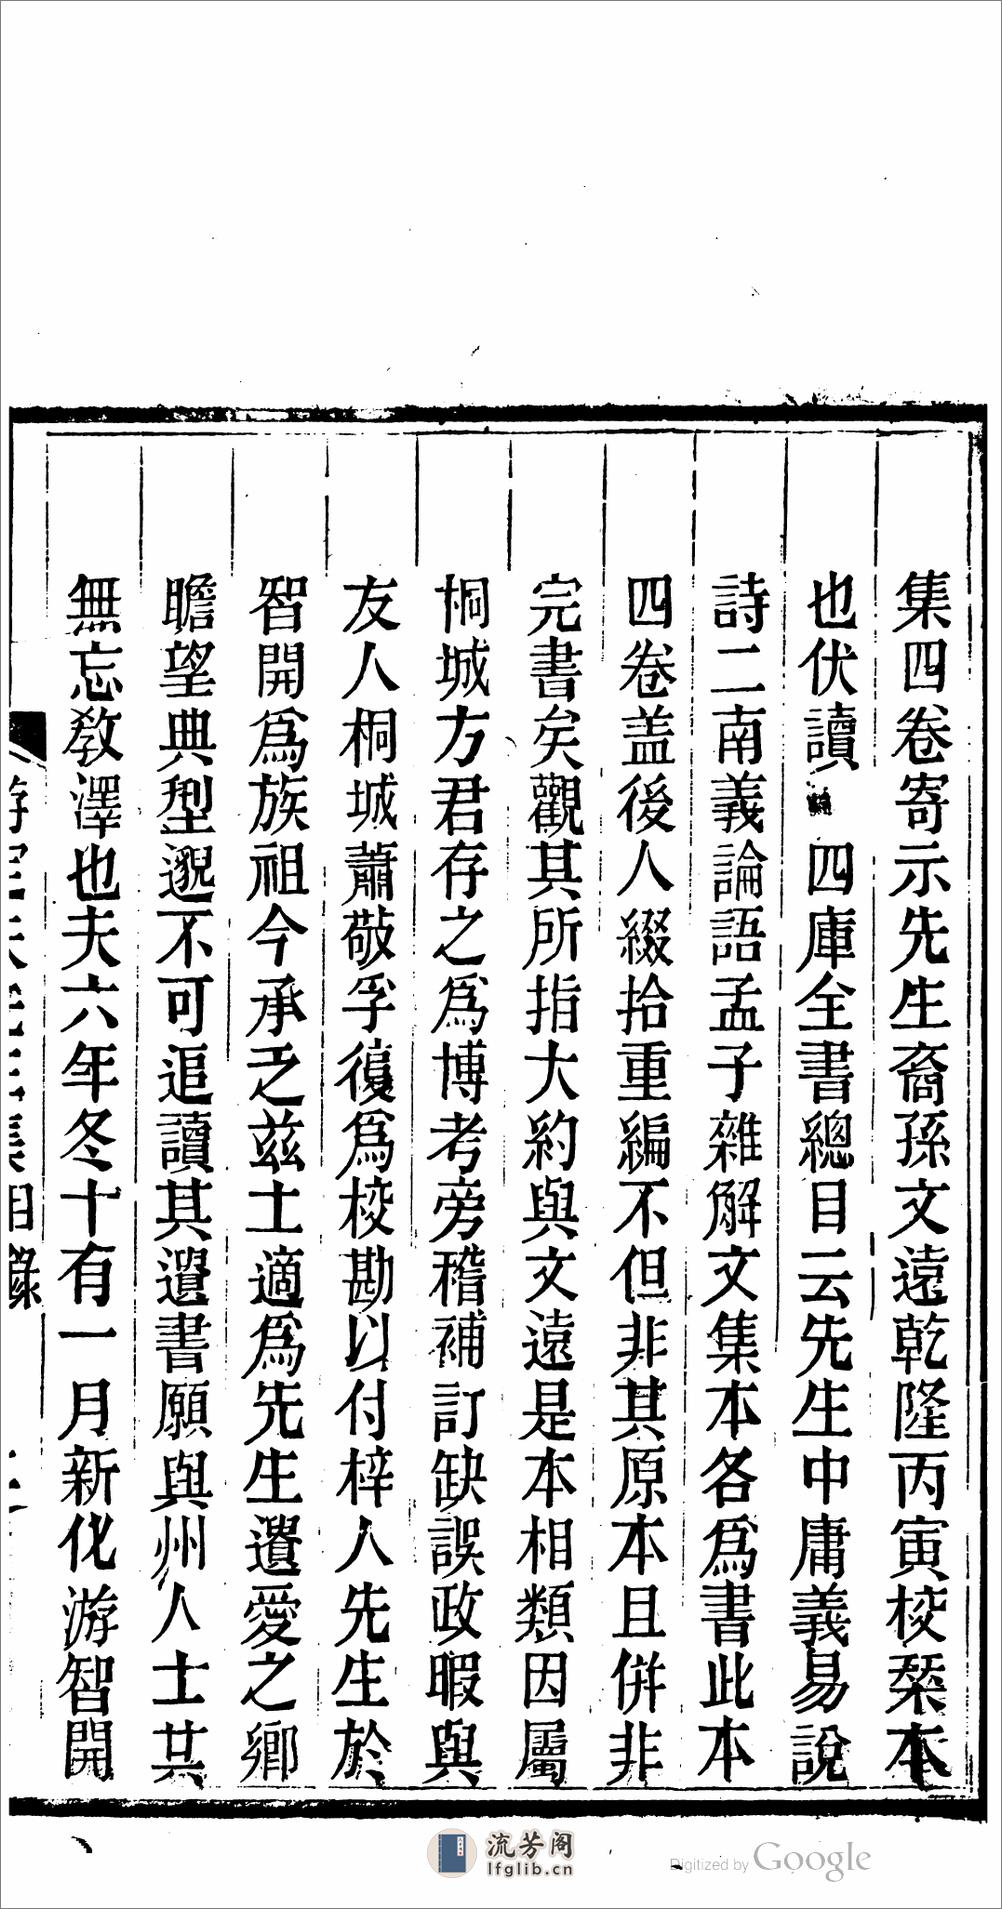 集四卷寄示先生裔孫文遠乾隆丙寅校栞本
也伏讀 四庫全書總目云先生中庸義易說
詩二南義論語孟子雜解文集本各爲書此本
四卷盖後人綴拾重編不但非其原本且併非
完書矣觀其所指大約與文遠是本相類因屬
桐城方君存之爲博考旁稽補訂缺誤政暇與
友人桐城蕭敬孚復爲校勘以付梓人先生於
智開爲族祖今承乏兹土適爲先生遺愛之鄉
瞻望典型邈不可追讀其遺書願與州人士共
無忘敎澤也夫六年冬十有一月新化游智開
流芳阁
lfglib.cn
Digitized by Google